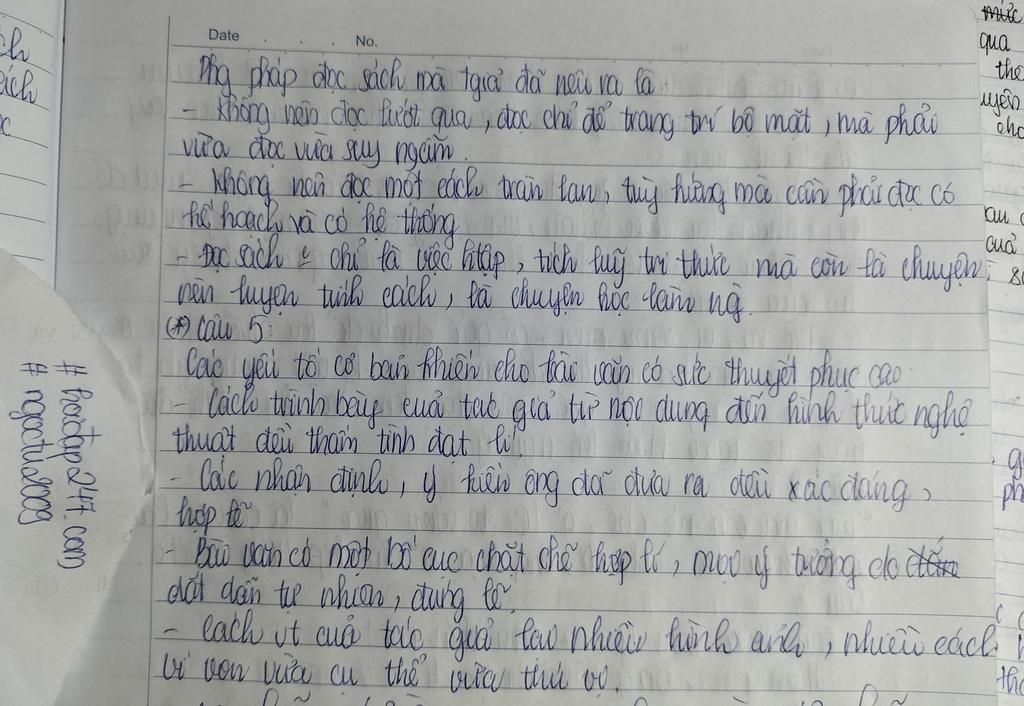 Date . . . No.
Phg pháp đọc sách mà tgiả đã nêu ra là
- Không nên đọc lướt qua, đọc chỉ để trang trí bộ mặt, mà phải
vừa đọc vừa suy ngẫm.
- Không nên đọc một cách tràn lan, tuỳ hứng mà cần phải đọc có
kế hoạch và có hệ thống
- Đọc sách chỉ là việc htập, tích luỹ tri thức mà còn là chuyện
rèn luyện tính cách, là chuyện học làm ng.
(*) Câu 5:
Các yếu tố cơ bản khiến cho bài văn có sức thuyết phục cao
- Cách trình bày của tác giả từ nội dung đến hình thức nghệ
thuật đều thấm tình đạt lí.
- Các nhận định, ý kiến ông đã đưa ra đều xác đáng,
hợp lí
- Bài văn có một bố cục chặt chẽ hợp lí, mọi ý tưởng do
dắt dẫn tự nhiên, đúng lẽ.
- Cách vt của tác giả tạo nhiều hình ảnh, nhiều cách
ví von vừa cụ thể vừa thú vị.
# hoctap247.com
# ngoctu2009
ách
qua
the
cho
của
ph